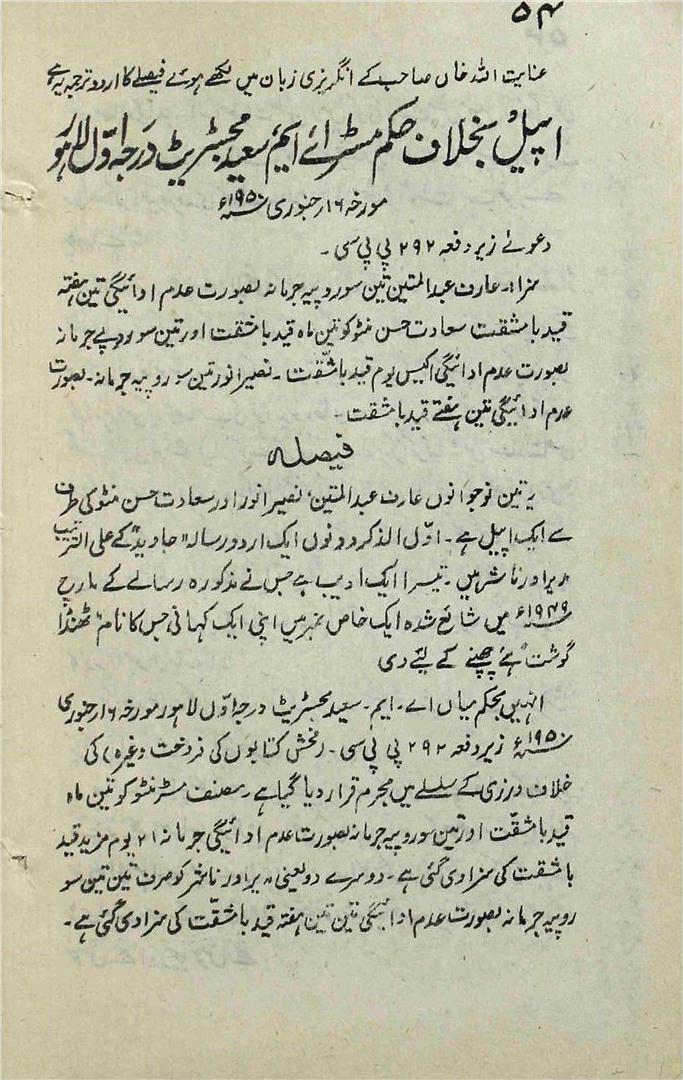 ۵۴
عنایت اللہ خاں صاحب کے انگریزی زبان میں لکھے ہوئے فیصلے کا اردو ترجمہ یہ ہے
اپیل بخلاف حکم مسٹر اے ایم سعید مجسٹریٹ درجہ اوّل لاہور
مورخہ ۱۶ر جنوری ۱۹۵۰ء
دعوئے زیر دفعہ ۲۹۲ پی پی سی۔
سزا:۔ عارف عبدالمتین تین سو روپیہ جرمانہ بصورت عدم ادائیگی تین ہفتہ
قید بامشقت سعادت حسن منٹو کو تین ماہ قید بامشقت اور تین سو روپے جرمانہ
بصورت عدم ادائیگی اکیس یوم قید بامشقّت۔ نصیر انور تین سو روپیہ جرمانہ۔ بصورت
عدم ادائیگی تین ہفتے قید بامشقت۔
فیصلہ
یہ تین نوجوانوں عارف عبدالمتین، نصیر انور اور سعادت حسن منٹو کی طرف
سے ایک اپیل ہے۔ اوّل الذکر دونوں ایک اردو رسالہ "جاوید" کے علی الترتیب
مدیر اور ناشر ہیں۔ تیسرا ایک ادیب ہے جس نے مذکورہ رسالے کے مارچ
۱۹۴۹ء میں شائع شدہ ایک خاص نمبر میں اپنی ایک کہانی جس کا نام "ٹھنڈا
گوشت" ہے چھپنے کے لئے دی
انہیں بحکم میاں اے۔ ایم۔ سعید مجسٹریٹ درجہ اوّل لاہور مورخہ ۱۶ر جنوری
۱۹۵۰ء زیر دفعہ ۲۹۲ پی پی سی۔ (فحش کتابوں کی فروخت وغیرہ) کی
خلاف ورزی کے سلسلے میں مجرم قرار دیا گیا ہے۔ مصنف مسٹر منٹو کو تین ماہ
قید بامشقّت اور تین سو روپیہ جرمانہ بصورت عدم ادائیگی جرمانہ ۲۱ یوم مزید قید
بامشقت کی سزا دی گئی ہے۔ دوسرے دو یعنی مدیر اور ناشر کو صرف تین تین سو
روپیہ جرمانہ بصورت عدم ادائیگی تین تین ہفتہ قید بامشقّت کی سزا دی گئی ہے۔